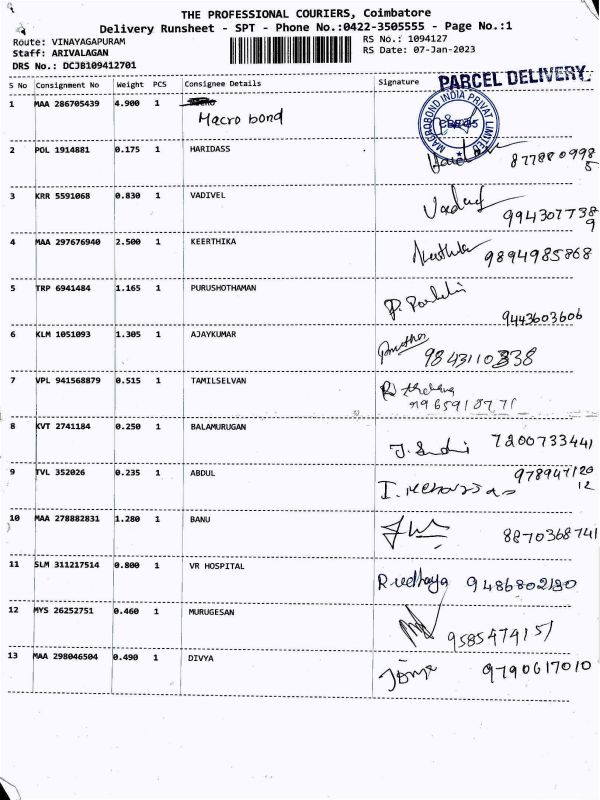 THE PROFESSIONAL COURIERS, Coimbatore
Delivery Runsheet - SPT - Phone No.:0422-3505555 - Page No.:1
Route: VINAYAGAPURAM RS No.: 1094127
Staff: ARIVALAGAN RS Date: 07-Jan-2023
DRS No.: DCJB109412701
S No Consignment No Weight PCS Consignee Details Signature PARCEL DELIVERY
1 MAA 286705439 4.900 1 Macro bond
MACROBOND INDIA PRIVATE LIMITED
2 POL 1914881 0.175 1 HARIDASS 877880998
3 KRR 5591068 0.830 1 VADIVEL Vadivel 994307738
9
4 MAA 297676940 2.500 1 KEERTHIKA Keerthika 9894985868
5 TRP 6941484 1.165 1 PURUSHOTHAMAN 9443603606
6 KLM 1051093 1.305 1 AJAYKUMAR 9843110338
7 VPL 941568879 0.515 1 TAMILSELVAN
8 KVT 2741184 0.250 1 BALAMURUGAN 7200733441
9 TVL 352026 0.235 1 ABDUL 978947120
12
10 MAA 278882831 1.280 1 BANU 8870368741
11 SLM 311217514 0.800 1 VR HOSPITAL 9486802180
12 MYS 26252751 0.460 1 MURUGESAN 9585474151
13 MAA 298046504 0.490 1 DIVYA 9790617010